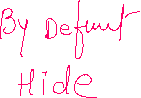 By Defunt
Hide